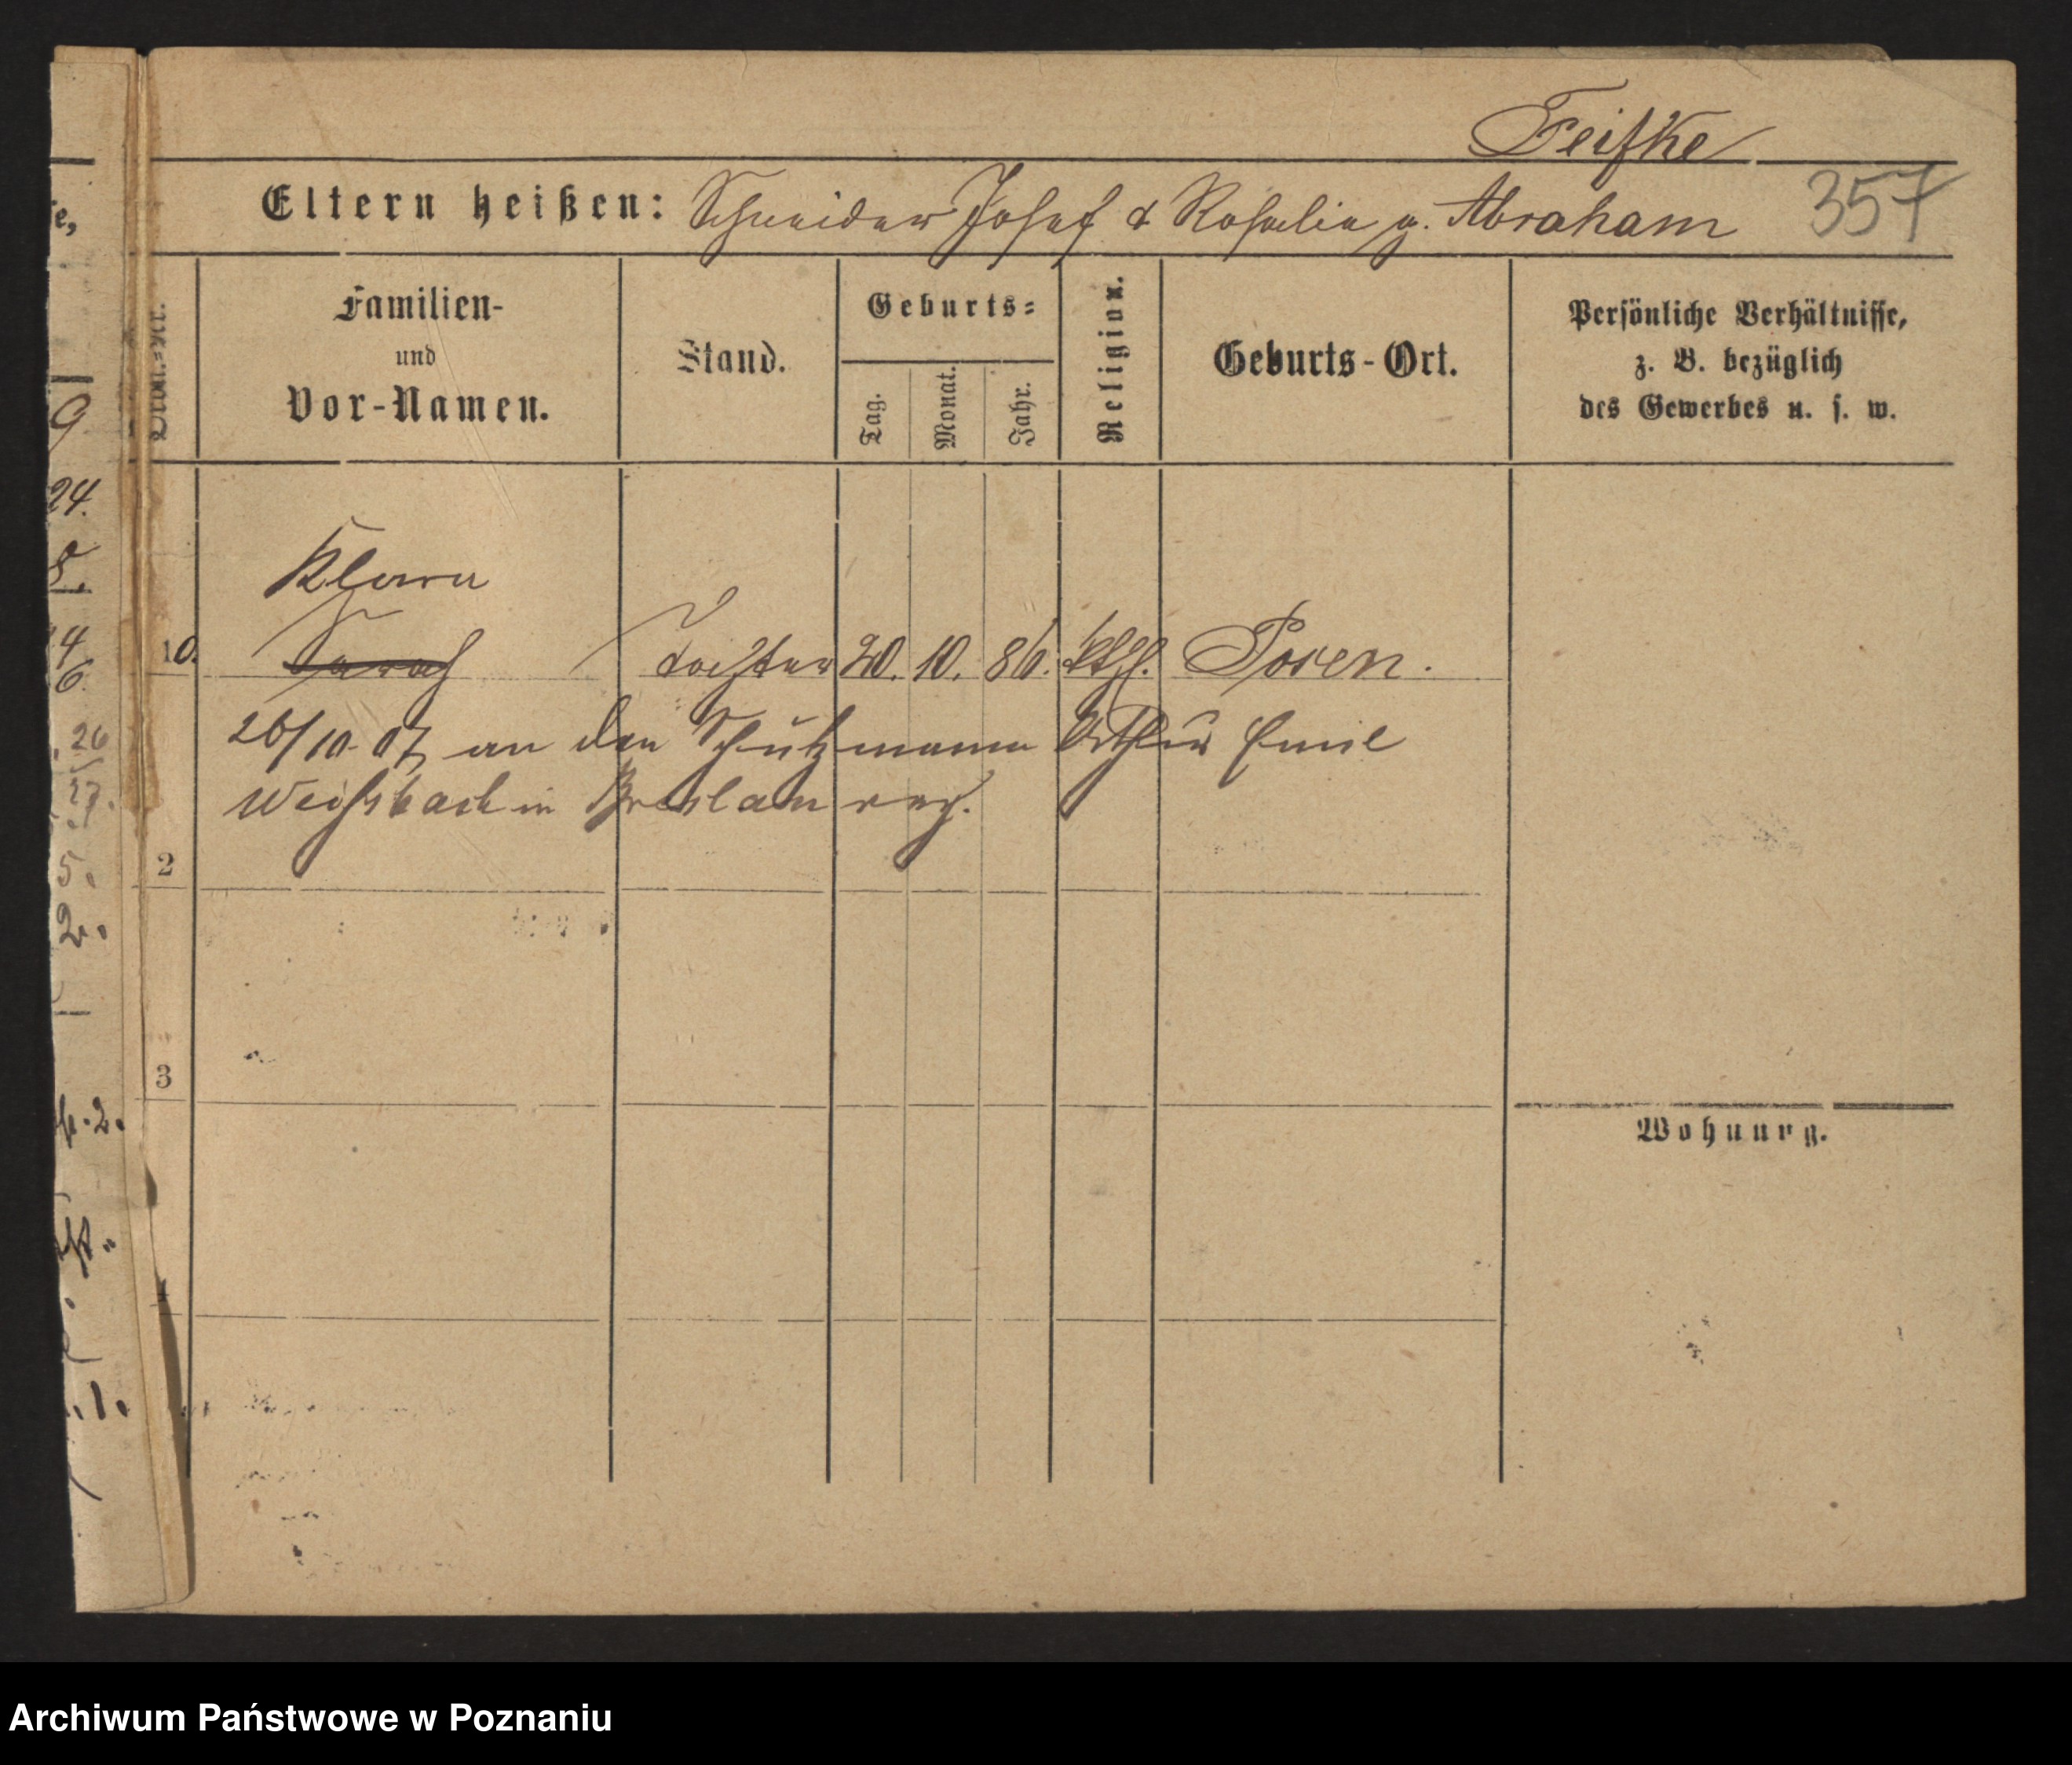 Feifke
Eltern heißen: Schneider Josef & Rosalie g. Abraham 357
Ordn.-Nr.
Familien-
und
Vor-Namen.
Stand.
Geburts-
Tag.
Monat.
Jahr.
Religion.
Geburts-Ort.
Persönliche Verhältnisse,
z. B. bezüglich
des Gewerbes u. s. w.
Klara
10. Sarah Tochter 20. 10. 86. kthl. Posen.
26/10. 07 an den Schutzmann Arthur Emil
Weihsbach in Breslau verh.
2
3
4
Wohnung.
9
24.
4
6
26
27.
5.
2.
.1.
Archiwum Państwowe w Poznaniu